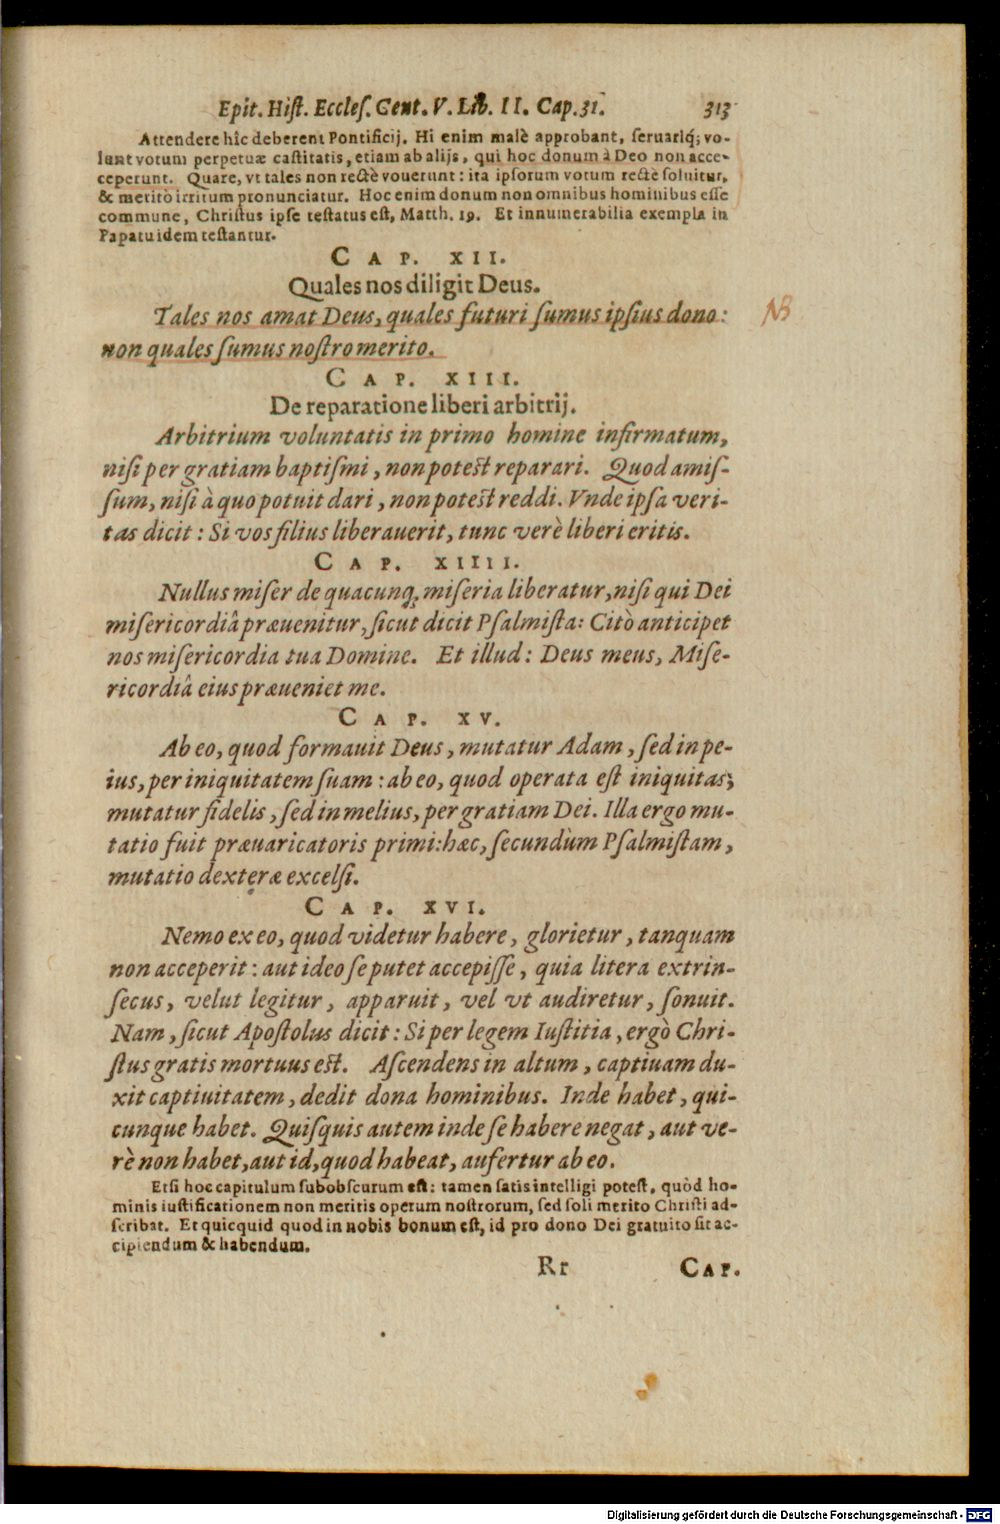 Epit. Hiſt. Eccleſ. Cent. V. Lib. II. Cap. 31. 313
Attendere hîc deberent Pontificij. Hi enim malè approbant, ſeruariq́; vo-
lunt votum perpetuæ caſtitatis, etiam ab alijs, qui hoc donum à Deo non acce-
ceperunt. Quare, vt tales non rectè vouerunt: ita ipſorum votum rectè ſoluitur,
& meritò irritum pronunciatur. Hoc enim donum non omnibus hominibus eſſe
commune, Chriſtus ipſe teſtatus eſt, Matth. 19. Et innumerabilia exempla in
Papatu idem teſtantur.
CAP. XII.
Quales nos diligit Deus.
Tales nos amat Deus, quales futuri ſumus ipſius dono: NB
non quales ſumus noſtro merito.
CAP. XIII.
De reparatione liberi arbitrij.
Arbitrium voluntatis in primo homine infirmatum,
niſi per gratiam baptiſmi, non poteſt reparari. Quod amiſ-
ſum, niſi à quo potuit dari, non poteſt reddi. Vnde ipſa veri-
tas dicit: Si vos filius liberauerit, tunc verè liberi eritis.
CAP. XIIII.
Nullus miſer de quacunq; miſeria liberatur, niſi qui Dei
miſericordiâ præuenitur, ſicut dicit Pſalmiſta: Citò anticipet
nos miſericordia tua Domine. Et illud: Deus meus, Miſe-
ricordiâ eius præueniet me.
CAP. XV.
Ab eo, quod formauit Deus, mutatur Adam, ſed in pe-
ius, per iniquitatem ſuam: ab eo, quod operata eſt iniquitas;
mutatur fidelis, ſed in melius, per gratiam Dei. Illa ergo mu-
tatio fuit præuaricatoris primi: hæc, ſecundùm Pſalmiſtam,
mutatio dexteræ excelſi.
CAP. XVI.
Nemo ex eo, quod videtur habere, glorietur, tanquam
non acceperit: aut ideo ſe putet accepiſſe, quia litera extrin-
ſecus, velut legitur, apparuit, vel vt audiretur, ſonuit.
Nam, ſicut Apoſtolus dicit: Si per legem Iuſtitia, ergò Chri-
ſtus gratis mortuus eſt. Aſcendens in altum, captiuam du-
xit captiuitatem, dedit dona hominibus. Inde habet, qui-
cunque habet. Quiſquis autem inde ſe habere negat, aut ve-
rè non habet, aut id, quod habeat, aufertur ab eo.
Etſi hoc capitulum ſubobſcurum eſt: tamen ſatis intelligi poteſt, quòd ho-
minis iuſtificationem non meritis operum noſtrorum, ſed ſoli merito Chriſti ad-
ſcribat. Et quicquid quod in nobis bonum eſt, id pro dono Dei gratuito ſit ac-
cipiendum & habendum.
Rr CAP.
Digitalisierung gefördert durch die Deutsche Forschungsgemeinschaft - DFG